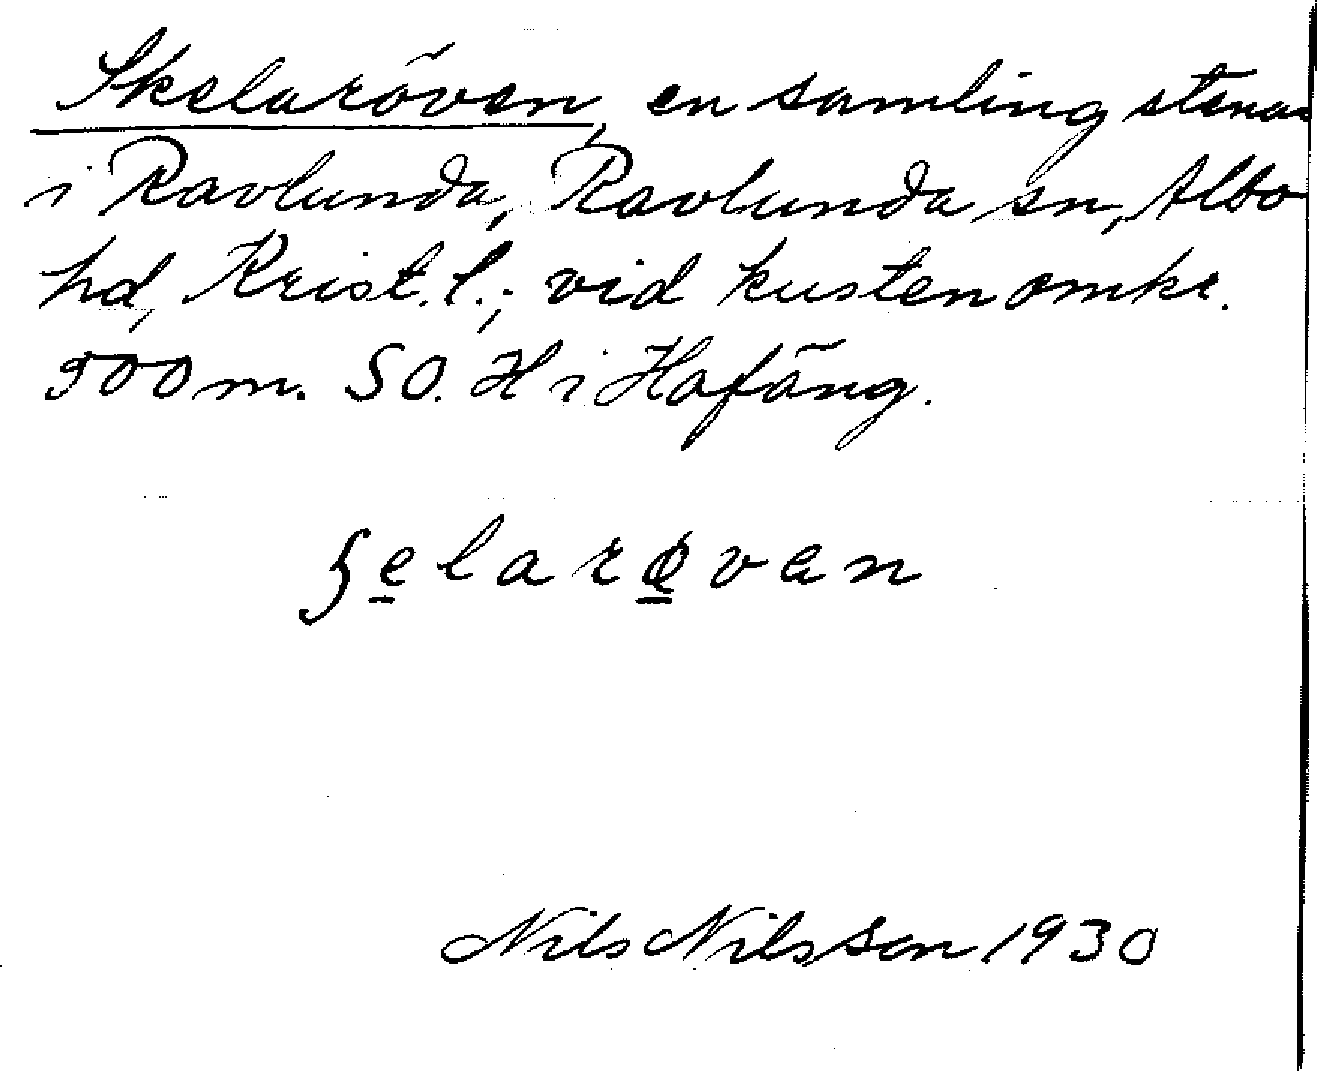 Skelaröven, en samling stenar
i Ravlunda, Ravlunda sn, Albo
hd, Krist. l.; vid kusten omkr.
500 m. SO. H i Hafäng.
ʃe̲larø̲ven
Nils Nilsson 1930